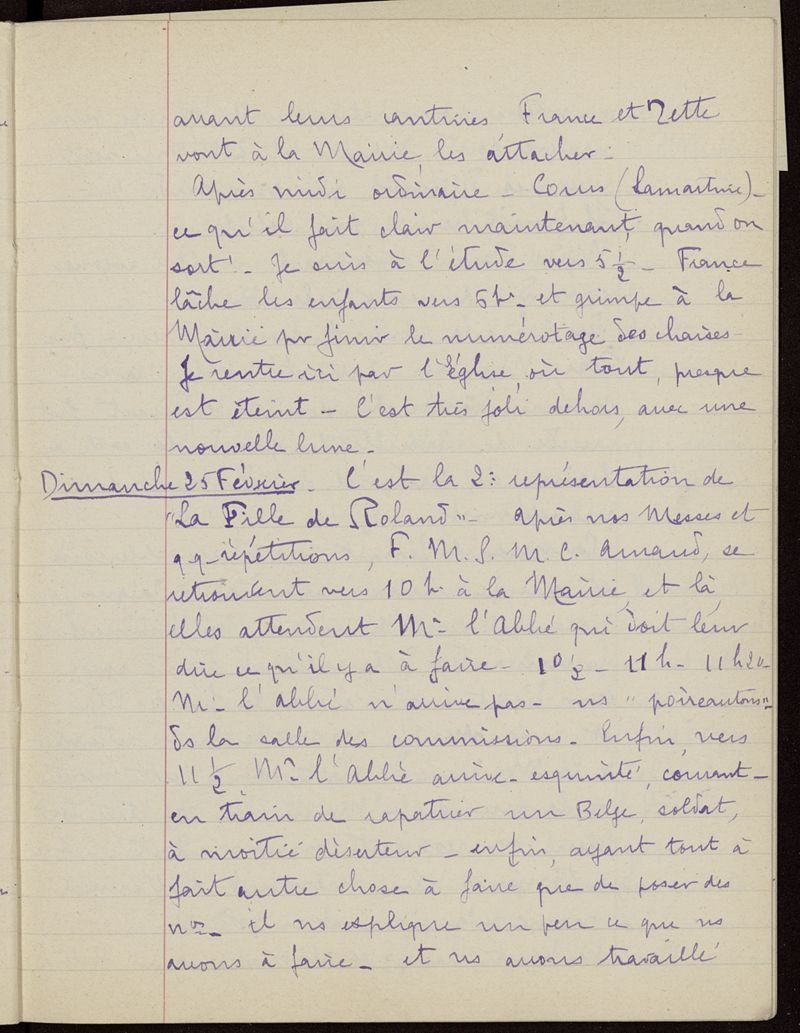 avant leurs cantines France et Zette
vont à la Mairie, les attacher.
Après midi ordinaire - Cours (Lamartine) -
ce qu'il fait clair maintenant, quand on
sort ! - Je suis à l'étude vers 5 1/2 - France
lâche les enfants vers 5h - et grimpe à la
Mairie pr finir le numérotage des chaises -
Je rentre ici par l'Église, où tout, presque
est éteint - C'est très joli dehors, avec une
nouvelle lune -
Dimanche 25 Février - C'est la 2e représentation de
"La Fille de Roland" - Après nos Messes et
qq - répétitions, F. M. S. M. C. Arnaud, se
retrouvent vers 10 h à la Mairie, et là,
elles attendent Mr l'Abbé qui doit leur
dire ce qu'il y a à faire - 10 1/2 - 11 h - 11 h 20 -
Mr l'Abbé n'arrive pas - ns "poireautons"
ds la salle des commissions - Enfin, vers
11 1/2, Mr l'Abbé arrive - esquinté, courant -
en train de rapatrier un Belge, soldat,
à moitié déserteur - enfin, ayant tout à
fait autre chose à faire que de poser des
nos - il ns explique un peu ce que ns
avons à faire - et ns avons travaillé